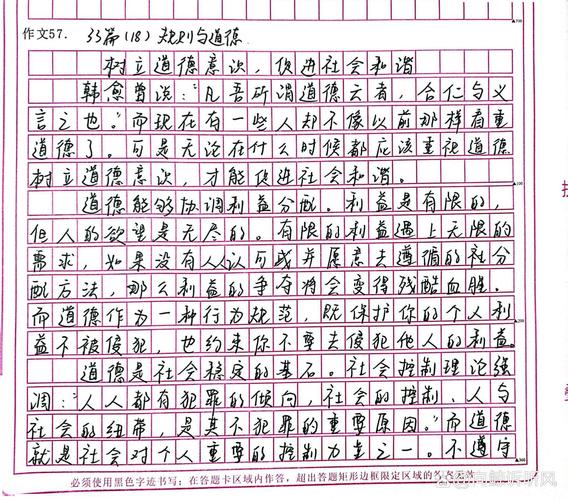 作文57. 33篇(18)规则与道德
树立道德意识，促进社会和谐
韩愈曾说："凡吾所谓道德云者，合仁与义
言之也。"而现在有一些人却不像以前那样看重
道德了。可是无论在什么时候都应该重视道德
树立道德意识，才能促进社会和谐。
道德能够协调利益分配。利益是有限的，
但人的欲望是无尽的。有限的利益遇上无限的
需求，如果没有人认可或并愿意去遵循的社分
配方法，那么利益的争夺将会变得残酷血腥。
而道德作为一种行为规范，既保护你的个人利
益不被侵犯，也约束你不要去侵犯他人的利益。
道德是社会稳定的基石。社会控制理论强
调："人人都有犯罪的倾向，社会的控制、人与
社会的纽带，是其不犯罪的重要原因。"而道德
就是社会对个人重要的控制力量之一。不遵守
必须使用黑色字迹书写；在答题卡区域内作答，超出答题矩形边框限定区域的答案无效